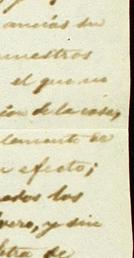 ancias su
nuestros
el que no
ion de la casa,
lamente de
n efecto;
ados los
bero, y sin
letra de